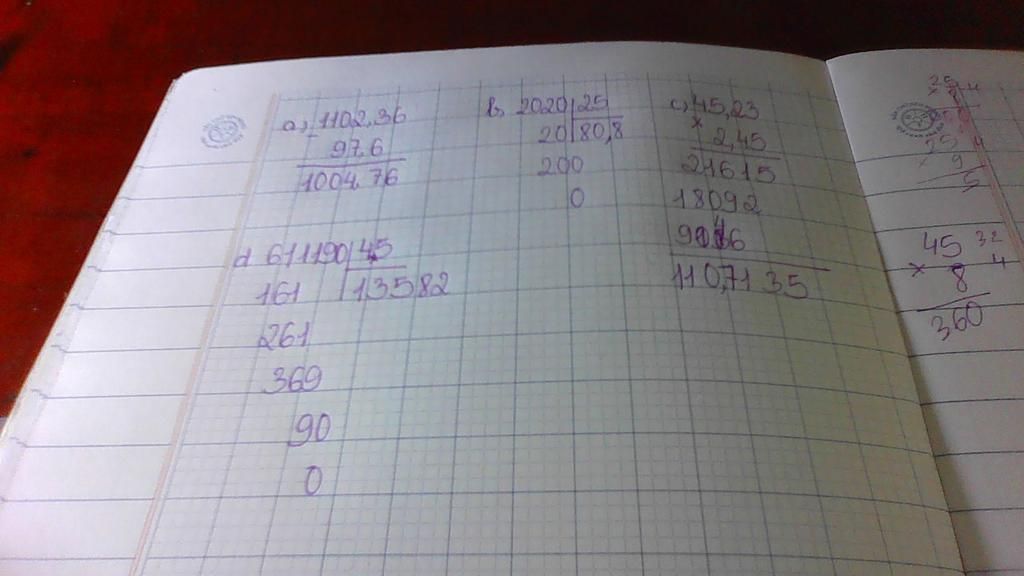 a, 1102,36
-
97,6
1004,76
b, 2020 25
20 80,8
200
0
c, 45,23
×
2,45
21615
18092
110,7135
d 611190 45
161 13582
261
369
90
0
45 32
× 8 4
360